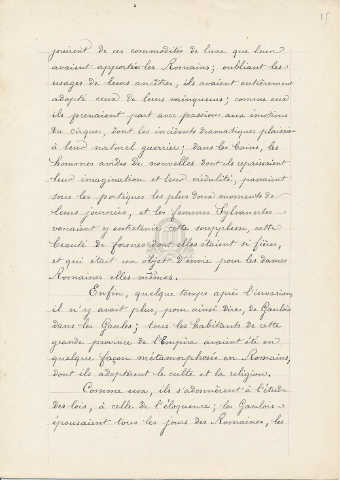 15
jouirent de ces commodités de luxe que leur
avaient apportées les Romains; oubliant les
usages de leurs ancêtres, ils avaient entièrement
adopté ceux de leurs vainqueurs; comme eux
ils prenaient part avec passion aux émotions
du cirque, dont les incidents dramatiques plaisaient
à leur naturel guerrier; dans les bains, les
hommes avides de nouvelles dont ils repaissaient
leur imagination et leur crédulité, passaient
sous les portiques les plus doux moments de
leurs journées, et les femmes Sylvanectes
venaient y entretenir cette souplesse, cette
beauté de formes dont elles étaient si fières,
et qui était un objet d'envie pour les dames
Romaines elles mêmes.
Enfin, quelque temps après l'invasion,
il n'y avait plus, pour ainsi dire, de Gaulois
dans les Gaules; tous les habitants de cette
grande province de l'Empire avaient été en
quelque façon métamorphosés en Romains,
dont ils adoptèrent le culte et la religion.
Comme eux, ils s'adonnèrent à l'étude
des lois, à celle de l'éloquence; les Gaulois
épousaient tous les jours des Romaines, les